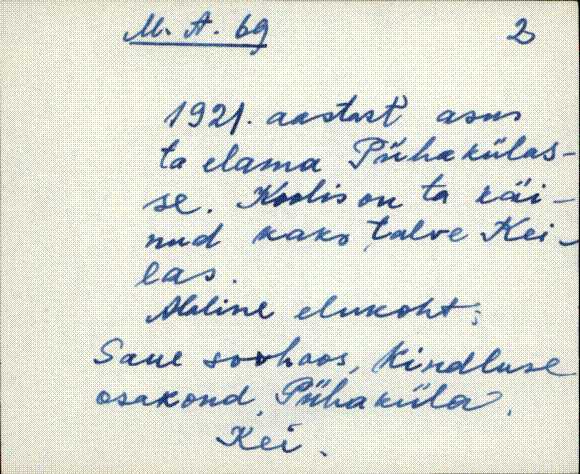 M. A. 69 2
1921. aastast asus
ta elama Pühakülas-
se. Koolis on ta käi-
nud kaks talve Kei-
las.
Alaline elukoht:
Saue sovhoos, Kindluse
osakond, Pühaküla,
Kei.